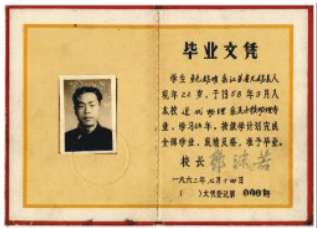 毕业文凭
学生 系江苏省无锡县人
现年22岁，于1958年9月入
本校近代物理系 专
业，学习 年，按教学计划完成
全部学业，成绩及格，准予毕业。
校长 郭沫若
一九六三年七月十四日
文凭登记第 号